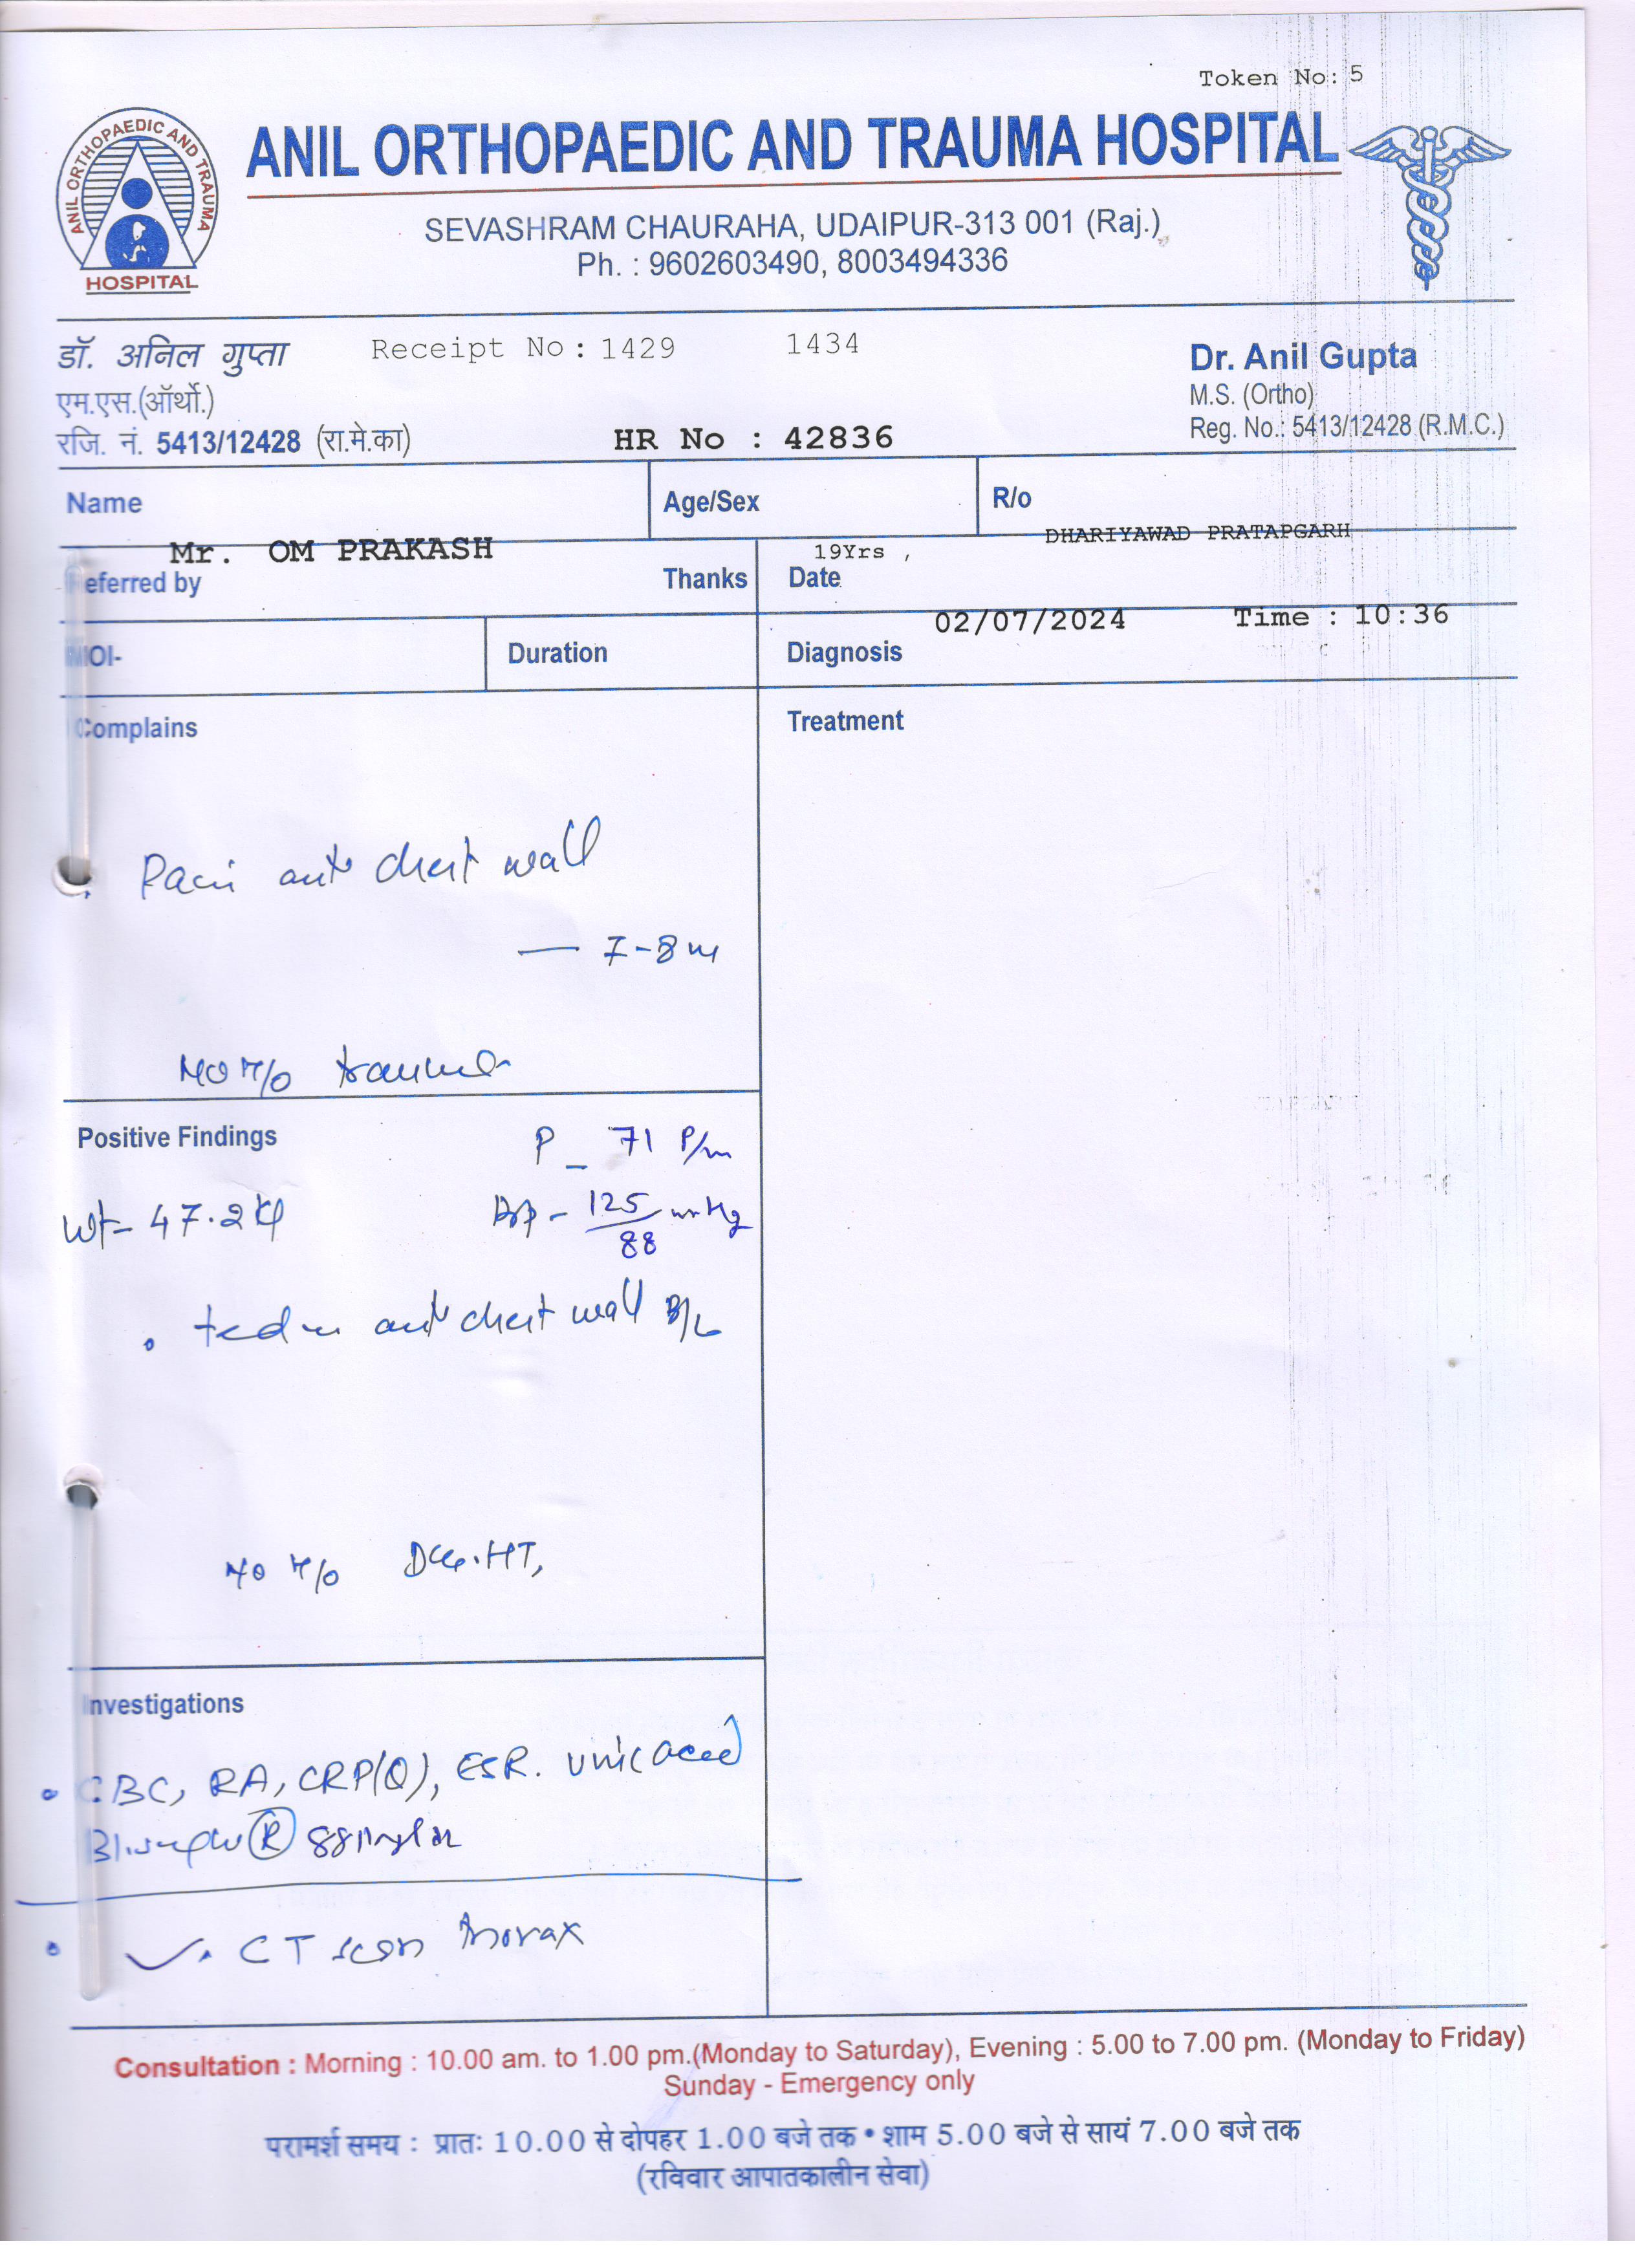 Token No: 5
ANIL ORTHOPAEDIC AND TRAUMA
HOSPITAL
ANIL ORTHOPAEDIC AND TRAUMA HOSPITAL
SEVASHRAM CHAURAHA, UDAIPUR-313 001 (Raj.)
Ph. : 9602603490, 8003494336
डॉ. अनिल गुप्ता
एम.एस.(ऑर्थो.)
रजि. नं. 5413/12428 (रा.मे.का)
Receipt No: 1429 1434
HR No : 42836
Dr. Anil Gupta
M.S. (Ortho)
Reg. No.: 5413/12428 (R.M.C.)
Name Age/Sex R/o
Mr. OM PRAKASH 19Yrs , DHARIYAWAD PRATAPGARH
Referred by Thanks Date
02/07/2024 Time : 10:36
MOI- Duration Diagnosis
Complains Treatment
Pain chest wall
— 7-8 m
No H/o trauma
Positive Findings
P - 71 P/m
Wt- 47.2 Kg
BP - 125/88 mmHg
chest wall B/L
No H/o HT,
Investigations
CBC, RA, CRP(Q), ESR. Uric acid
Bl. sugar (R) 88 mg/dl
CT scan Thorax
Consultation : Morning : 10.00 am. to 1.00 pm.(Monday to Saturday), Evening : 5.00 to 7.00 pm. (Monday to Friday)
Sunday - Emergency only
परामर्श समय : प्रातः 10.00 से दोपहर 1.00 बजे तक • शाम 5.00 बजे से सायं 7.00 बजे तक
(रविवार आपातकालीन सेवा)